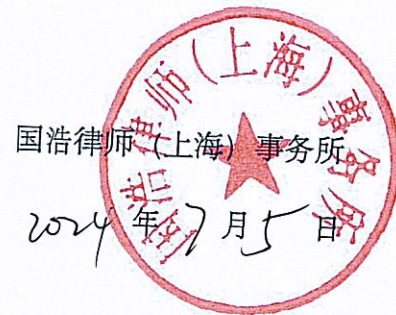 国浩律师（上海）事务所
国浩律师（上海）事务所
2024年7月5日